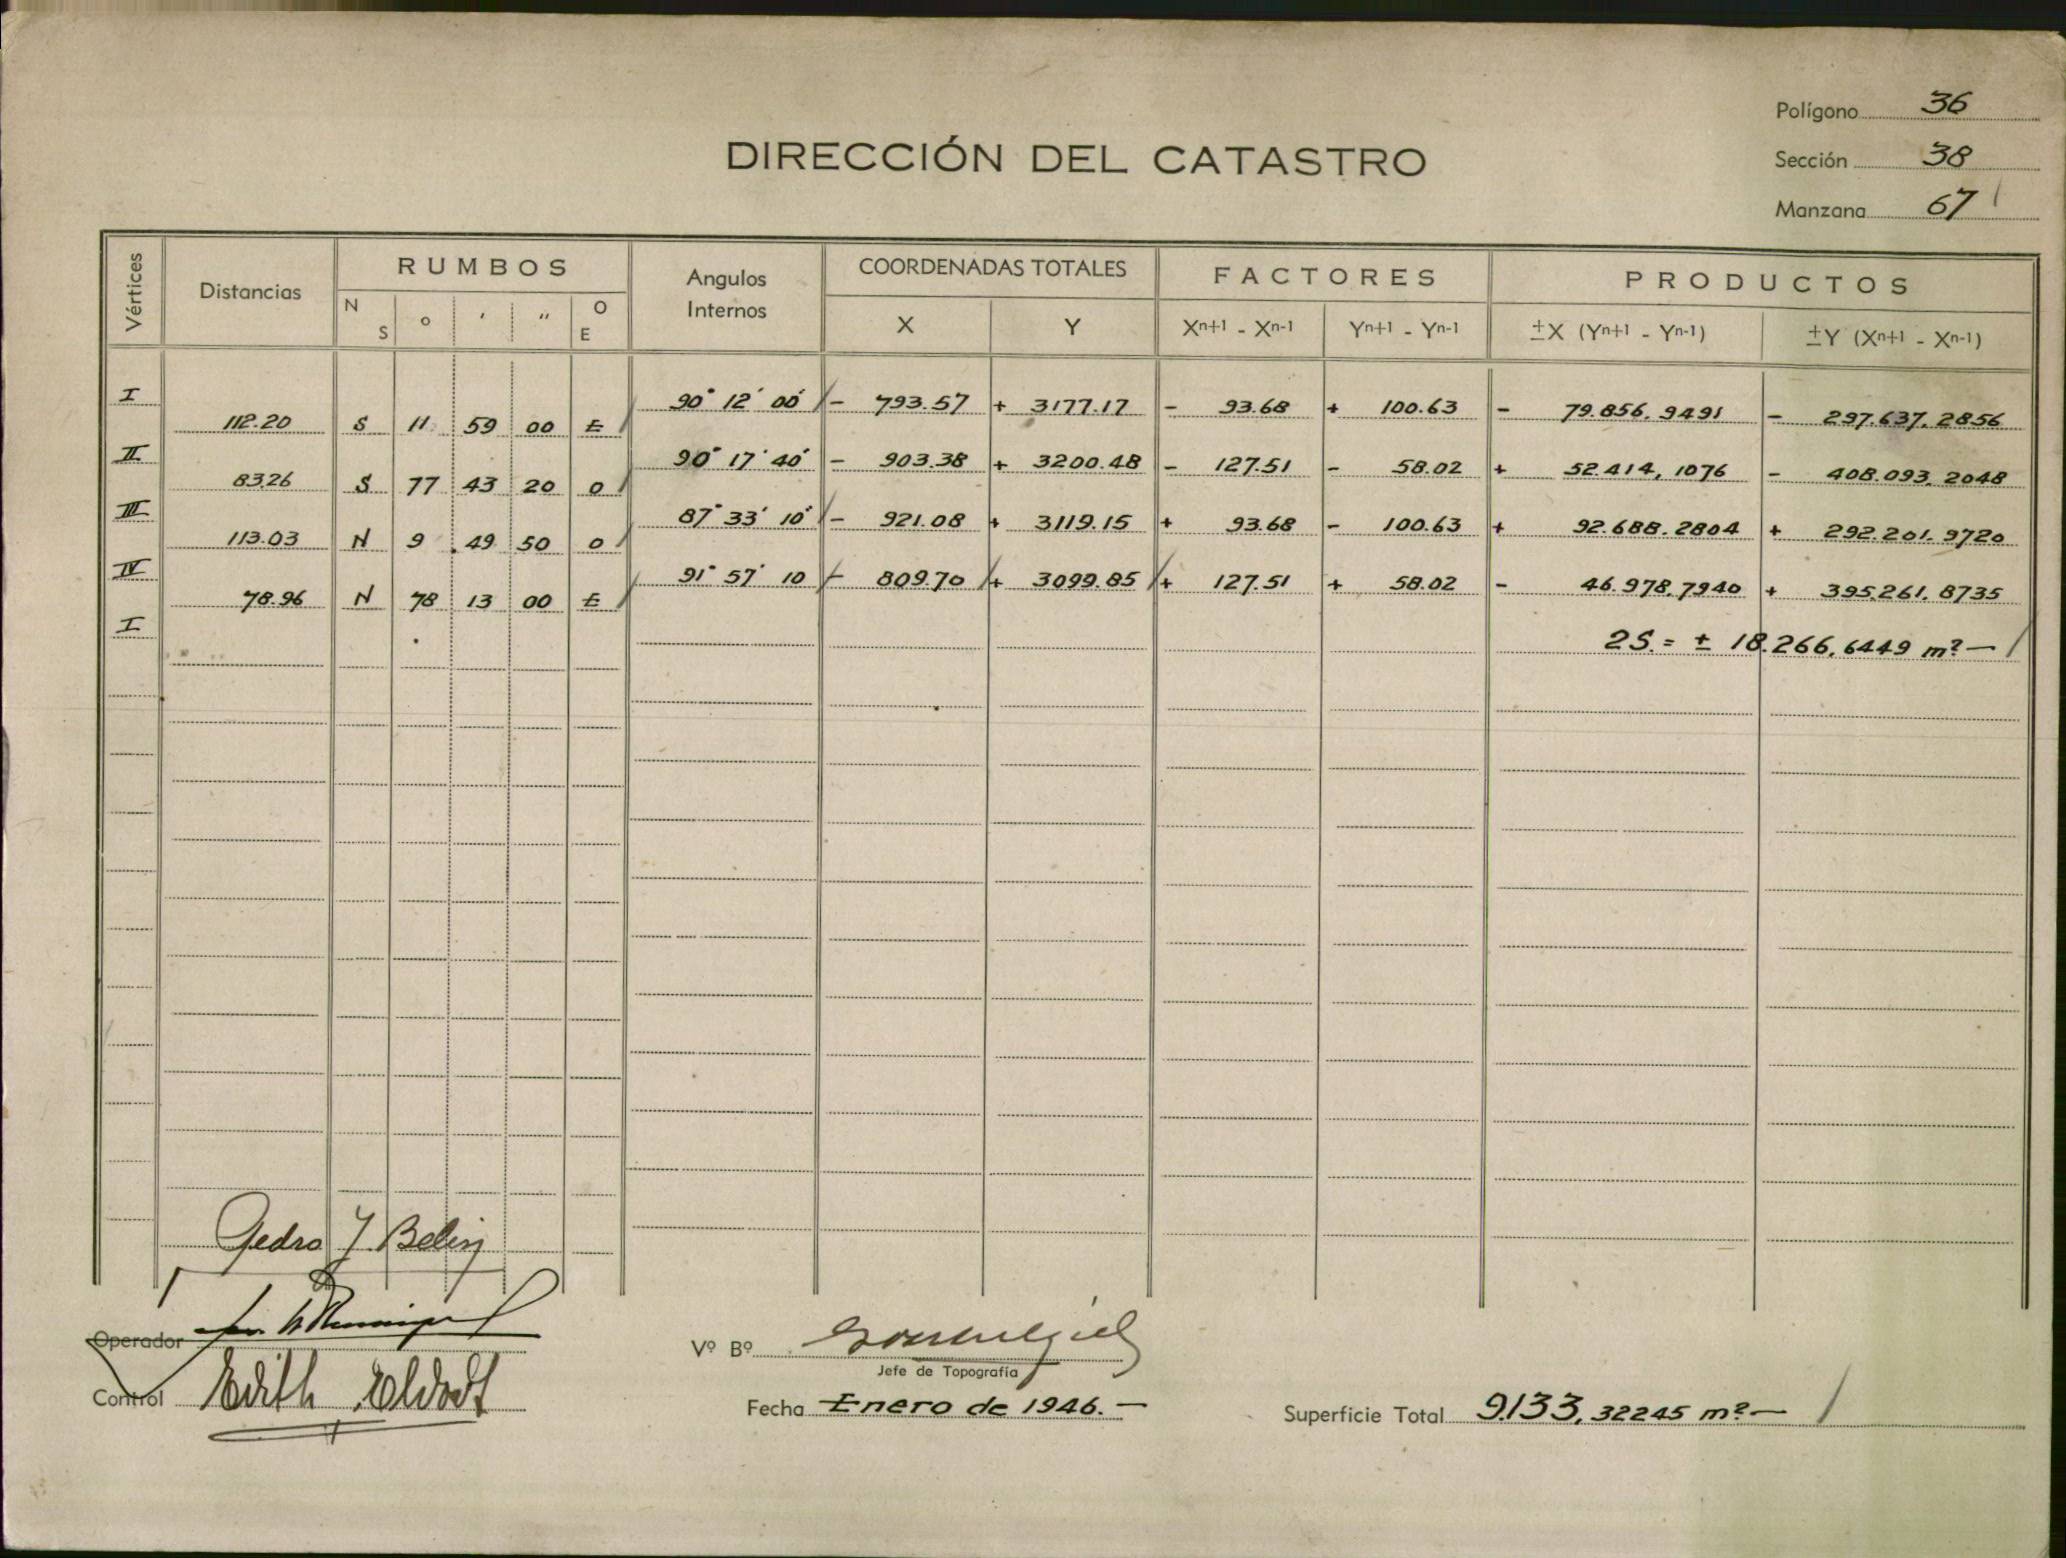 Polígono 36
DIRECCIÓN DEL CATASTRO
Sección 38
Manzana 67
Vértices Distancias RUMBOS Angulos Internos COORDENADAS TOTALES FACTORES PRODUCTOS
N S ° ' " O E X Y Xn+1 - Xn-1 Yn+1 - Yn-1 ±X (Yn+1 - Yn-1) ±Y (Xn+1 - Xn-1)
I 90° 12' 00' - 793.57 + 3177.17 - 93.68 + 100.63 - 79.856,9491 - 297.637,2856
112.20 S 11 59 00 E
II 90° 17' 40' - 903.38 + 3200.48 - 127.51 - 58.02 + 52.414,1076 - 408.093,2048
83.26 S 77 43 20 O
III 87° 33' 10' - 921.08 + 3119.15 + 93.68 - 100.63 + 92.688.2804 + 292.201.9720
113.03 N 9 49 50 O
IV 91° 57' 10 - 809.70 + 3099.85 + 127.51 + 58.02 - 46.978,7940 + 395.261,8735
78.96 N 78 13 00 E
I
2S. = ± 18.266,6449 m² —
Pedro J. Belin
Operador
Vº Bº
Jefe de Topografía
Control Edith
Fecha Enero de 1946. —
Superficie Total 9.133,32245 m² —